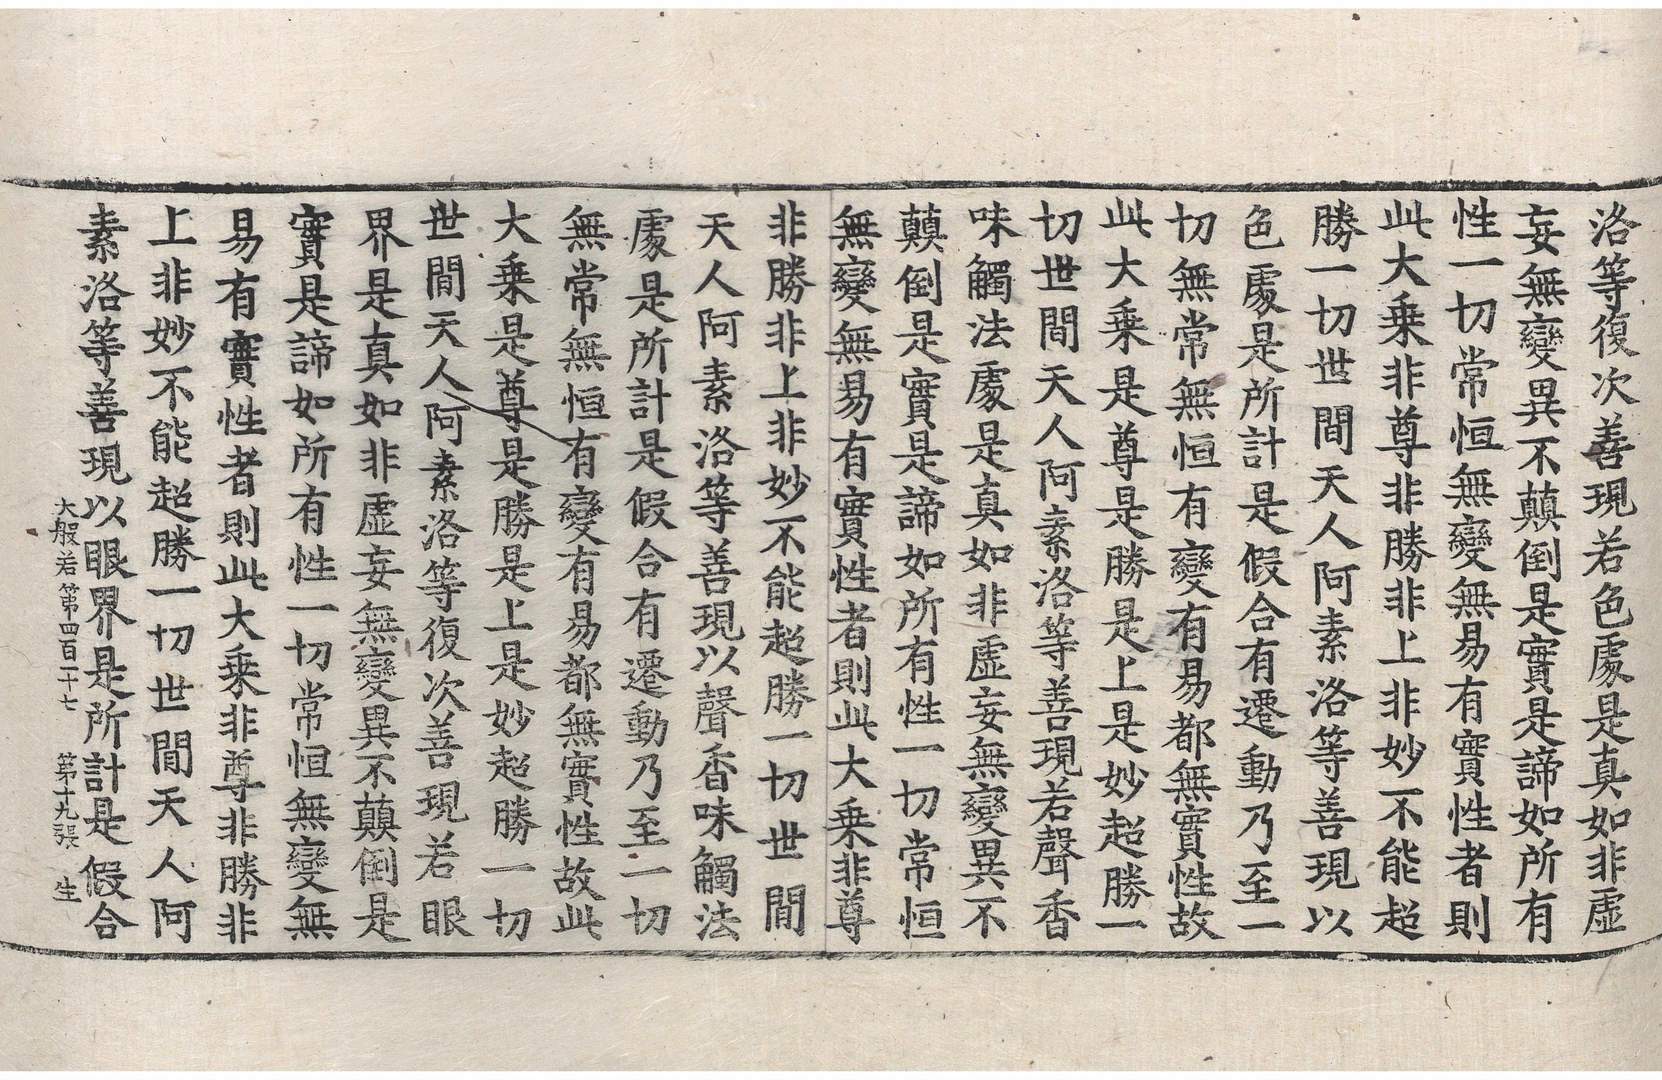 洛等復次善現若色處是真如非虛
妄無變異不顛倒是實是諦如所有
性一切常恒無變無易有實性者則
此大乘非尊非勝非上非妙不能超
勝一切世間天人阿素洛等善現以
色處是所計是假合有遷動乃至一
切無常無恒有變有易都無實性故
此大乘是尊是勝是上是妙超勝一
切世間天人阿素洛等善現若聲香
味觸法處是真如非虛妄無變異不
顛倒是實是諦如所有性一切常恒
無變無易有實性者則此大乘非尊
非勝非上非妙不能超勝一切世間
天人阿素洛等善現以聲香味觸法
處是所計是假合有遷動乃至一切
無常無恒有變有易都無實性故此
大乘是尊是勝是上是妙超勝一切
世間天人阿素洛等復次善現若眼
界是真如非虛妄無變異不顛倒是
實是諦如所有性一切常恒無變無
易有實性者則此大乘非尊非勝非
上非妙不能超勝一切世間天人阿
素洛等善現以眼界是所計是假合
大般若第四百一十七 第十九張 生